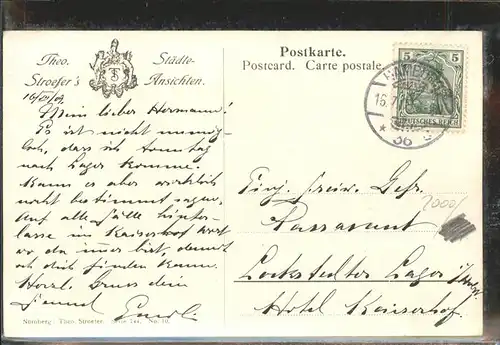 Theo. Stroefer's
Städte-Ansichten.
Postkarte.
Postcard. Carte postale.
5 5
DEUTSCHES REICH
HAMBURG
36
Mein lieber Hermann!
Es ist nicht unmög-
lich, dass ich Sonntag
nach Lager komme.
Kann es aber wirklich
nicht bestimmt sagen.
Auf alle Fälle hinter-
lasse im Kaiserhof wert
wo du immer bist, damit
ich dich finden kann.
Herzl. Gruss dein
Freund
Einj. Freiw. Gefr.
Lockstedter Lager
Hotel Kaiserhof.
2000/
Nürnberg. Theo. Stroefer. Serie 744. No. 10.